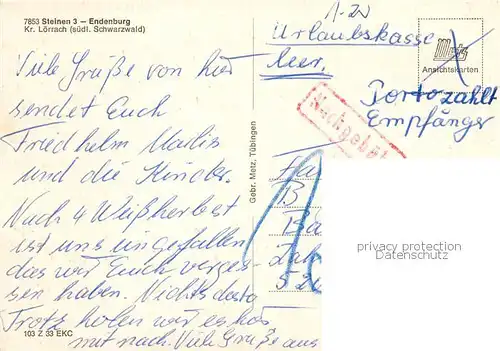 7853 Steinen 3 — Endenburg
Kr. Lörrach (südl. Schwarzwald)
Viele Grüße von hier
sendet Euch
Friedhelm Marlis
und die Kinder.
Nach 4 Weißherbst
ist uns eingefallen
das wir Euch verges-
sen haben. Nichts desto
Trotz holen wir es
mit nach. Viele Grüße aus
103 Z 33 EKC
Gebr. Metz, Tübingen
Urlaubskasse
leer.
Metz
Ansichtskarten
Porto zahlt
Empfänger
Nachgebühr
privacy protection
Datenschutz